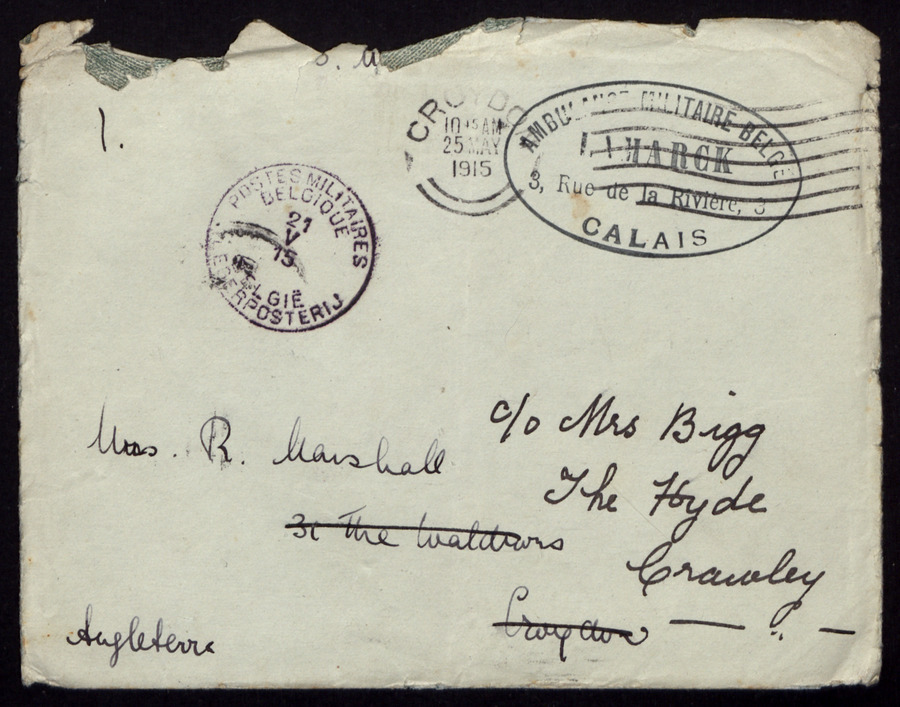 1.
CROYDO
10 15 AM
25 MAY
1915
AMBULANCE MILITAIRE BELGE
3, Rue de la Rivière, 3
CALAIS
POSTES MILITAIRES
BELGIQUE
21
V
15
BELGIË
LEGERPOSTERIJ
Mrs. R. Marshall
c/o Mrs Bigg
The Hyde
Crawley
The Waldrons
Croydon
Angleterre